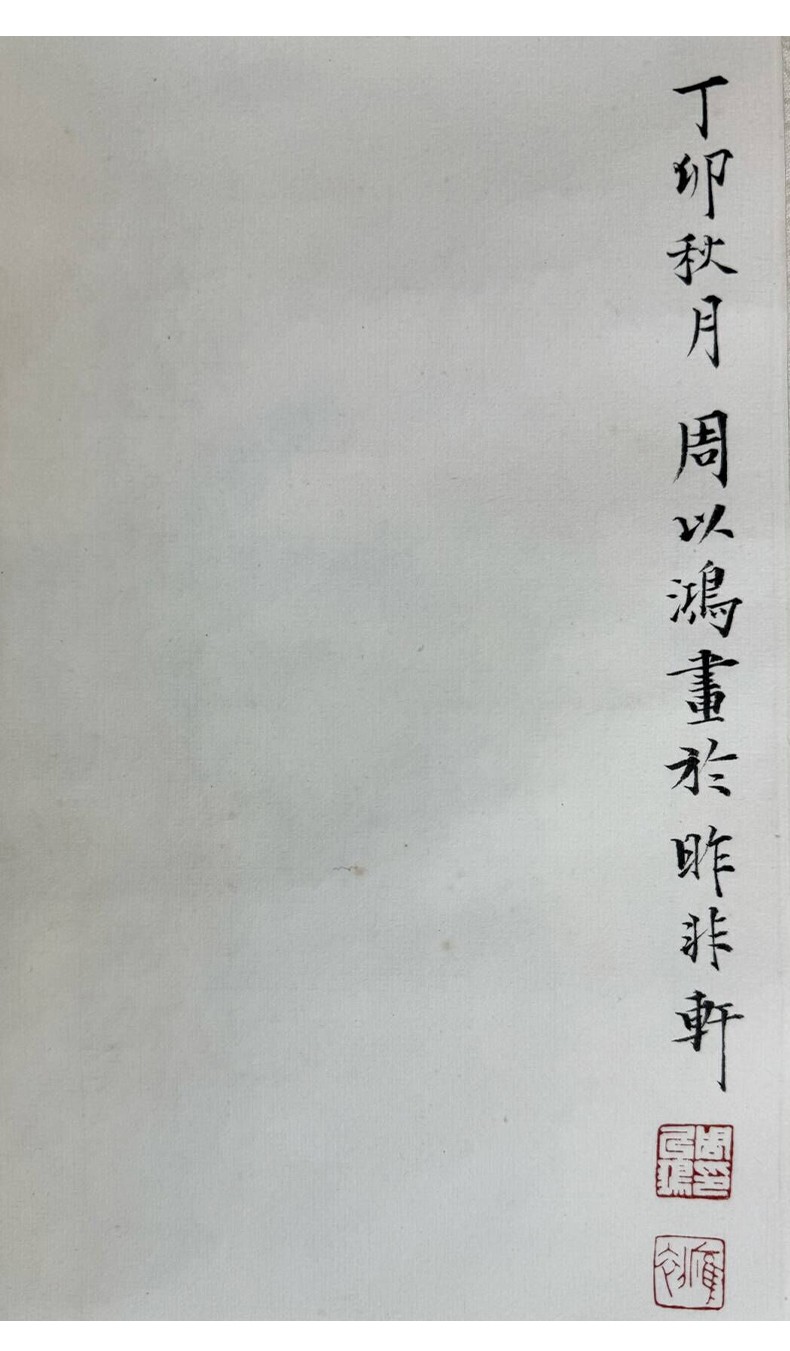 丁卯秋月 周以鴻畫於昨非軒
周印以鴻